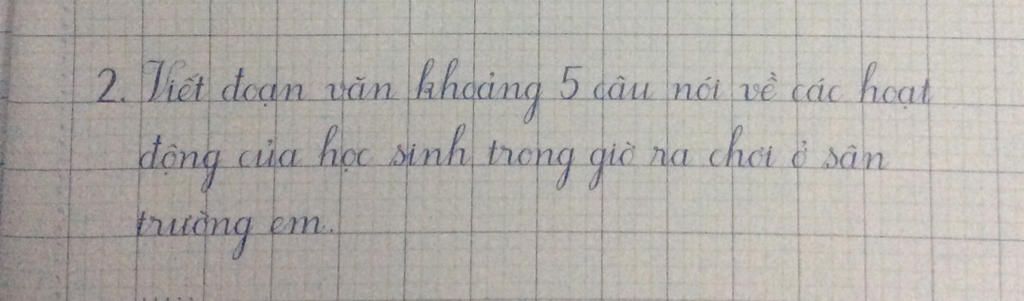 2. Viết đoạn văn khoảng 5 câu nói về các hoạt
động của học sinh trong giờ ra chơi ở sân
trường em.